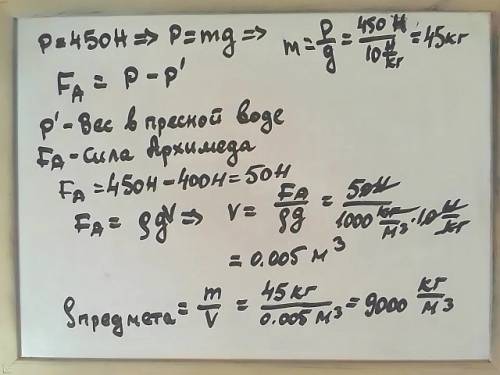 P=450H => P=mg => m = P/g = 450 H / 10 H/кг = 45кг
F_A = P - P'
P' - Вес в пресной воде
F_A - Сила Архимеда
F_A = 450H - 400H = 50H
F_A = ρgV => V = F_A/ρg = 50H / 1000 кг/м³ · 10 H/кг
= 0.005 м³
ρ предмета = m/V = 45 кг / 0.005 м³ = 9000 кг/м³